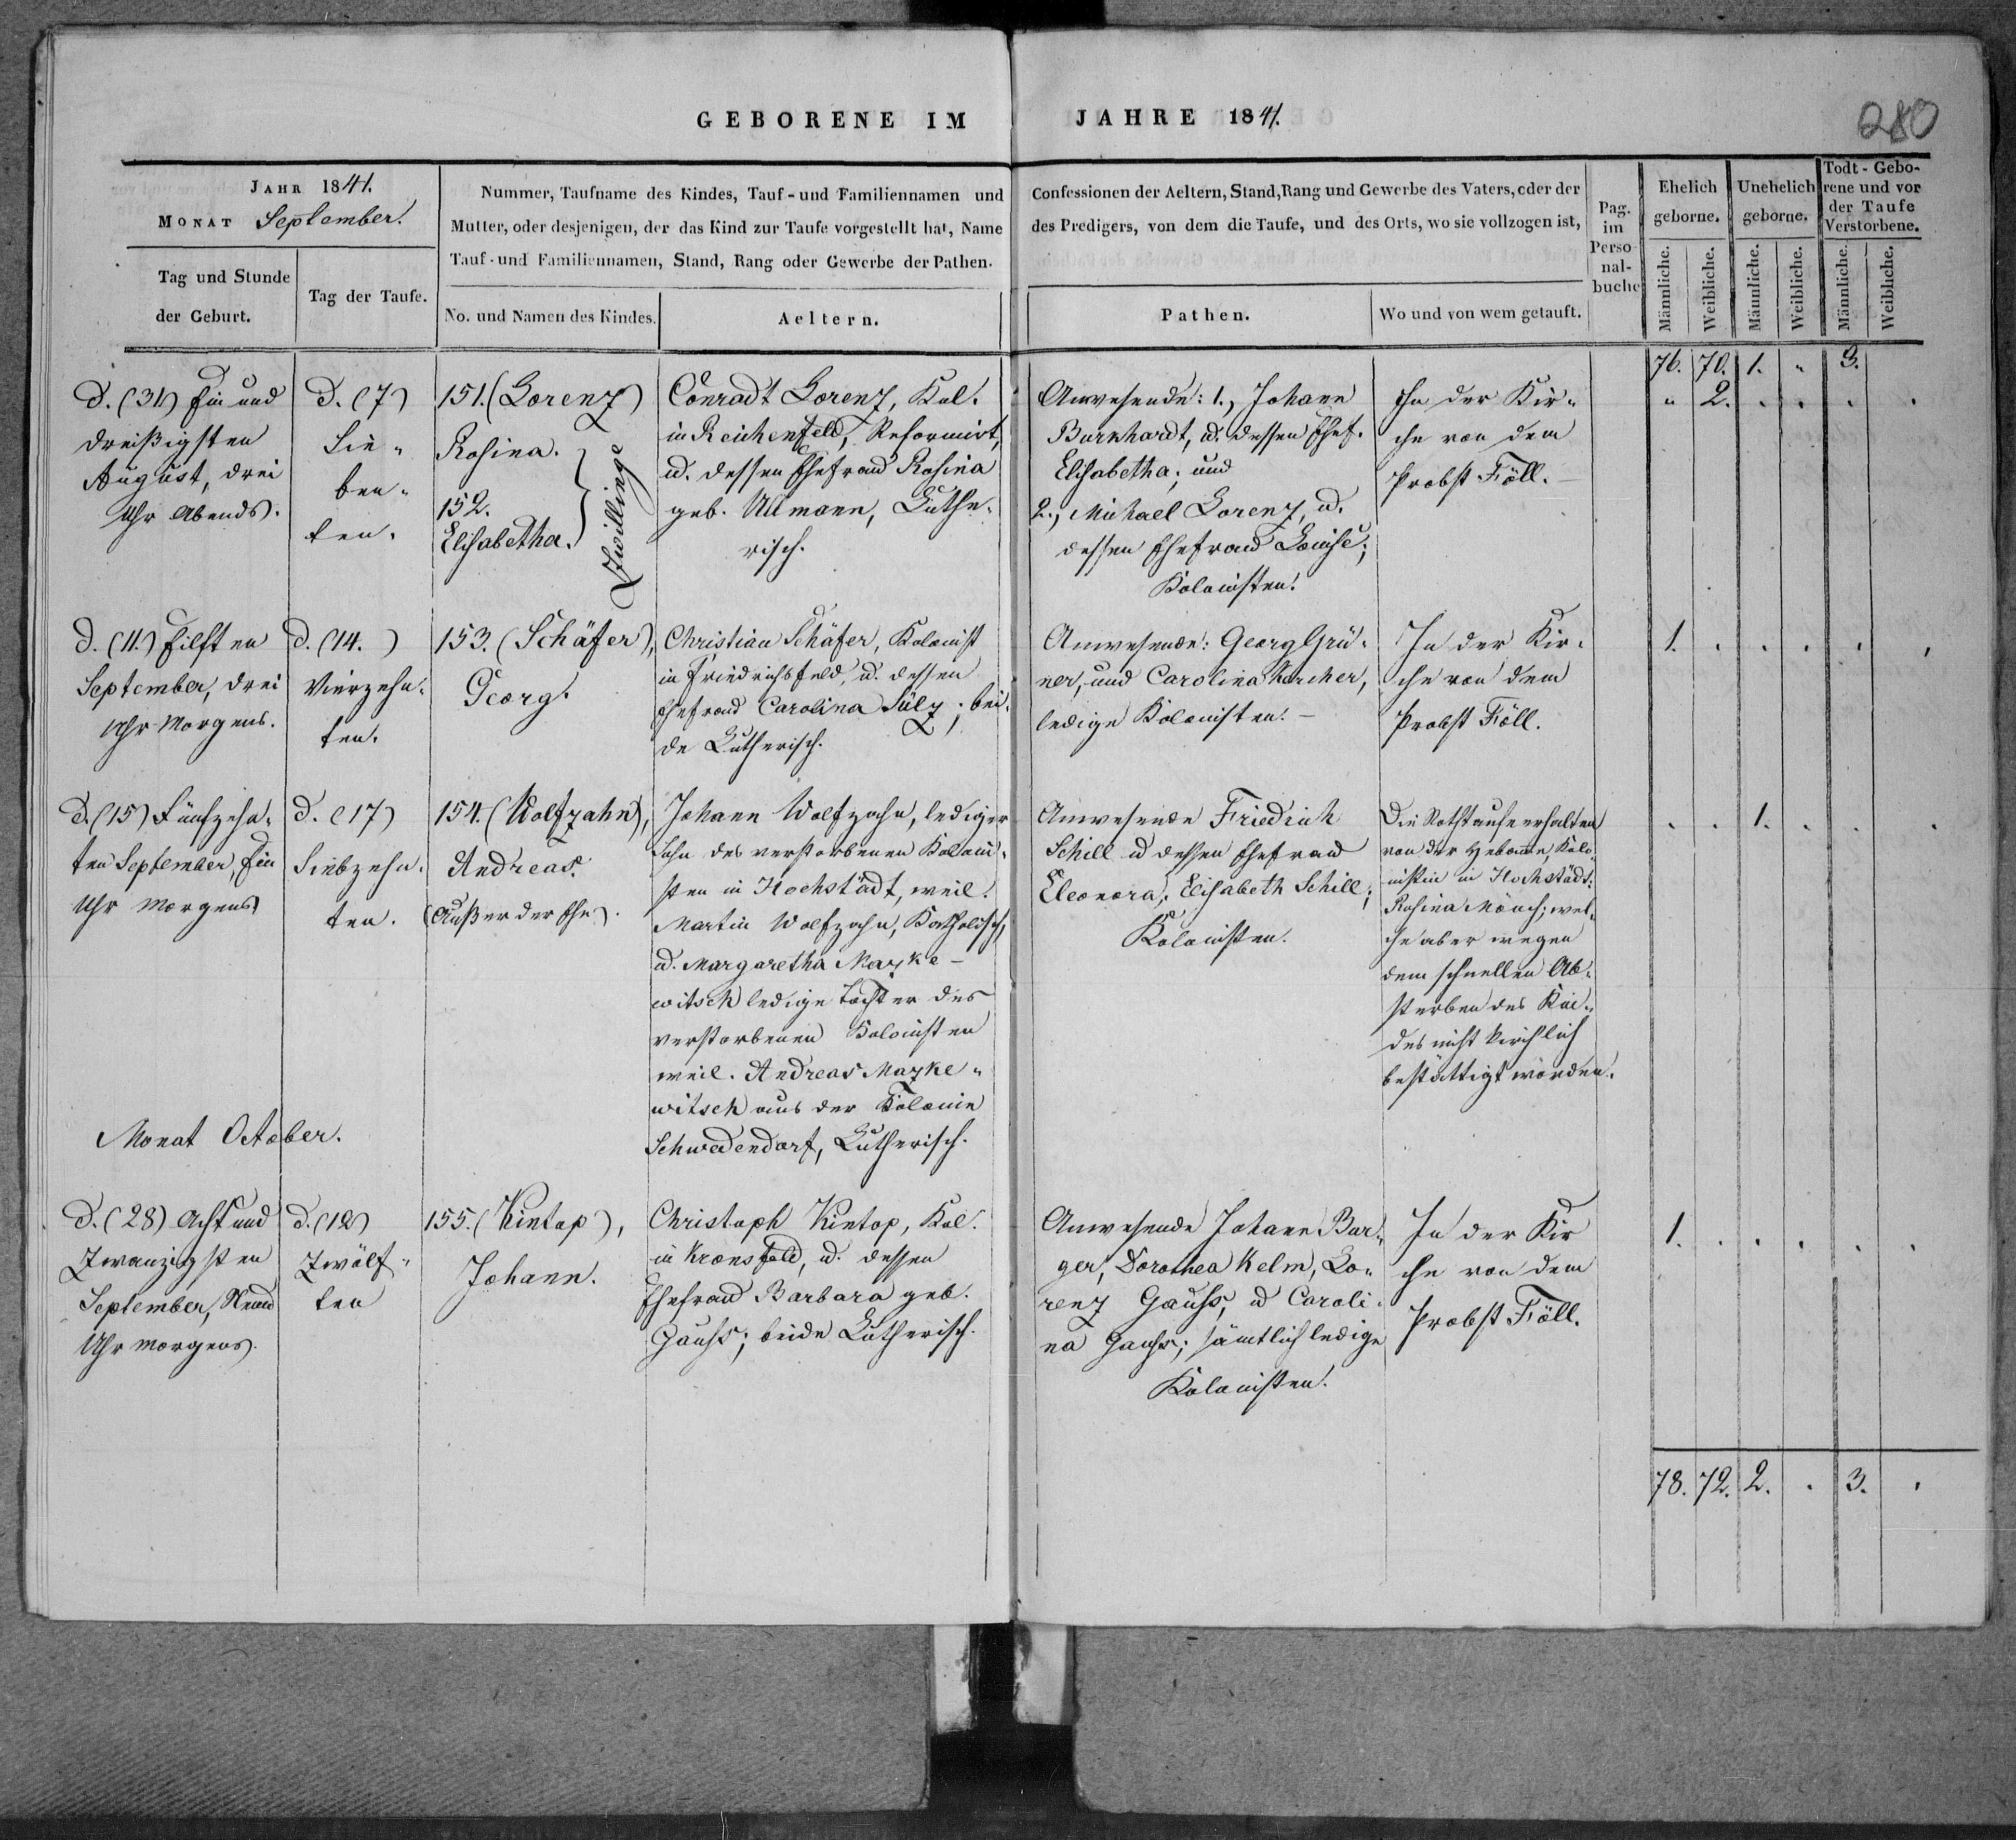 GEBORENE IM JAHRE 1841.
280
JAHR 1841.
MONAT September.
Tag und Stunde
der Geburt.
Tag der Taufe.
Nummer, Taufname des Kindes, Tauf- und Familiennamen und
Mutter, oder desjenigen, der das Kind zur Taufe vorgestellt hat, Name
Tauf- und Familiennamen, Stand, Rang oder Gewerbe der Pathen.
No. und Namen des Kindes.
Aeltern.
Confessionen der Aeltern, Stand, Rang und Gewerbe des Vaters, oder der
des Predigers, von dem die Taufe, und des Orts, wo sie vollzogen ist,
Pathen.
Wo und von wem getauft.
Pag.
im
Perso-
nal-
buche
Ehelich
geborne.
Unehelich
geborne.
Todt-Gebo-
rene und vor
der Taufe
Verstorbene.
Männliche.
Weibliche.
Männliche.
Weibliche.
Männliche.
Weibliche.
76. 70. 1. " 3.
d. (31) Ein und
dreißigsten
August, drei
Uhr Abends.
d. (7)
Sie-
ben-
ten.
151. (Lorenz)
Rosina.
152.
Elisabetha.
Zwillinge
Conradt Lorenz, Kol.
in Reichenfeld, Reformirt,
u. dessen Ehefrau Rosina
geb. Ullmann, Luthe-
risch.
Anwesende: 1., Johann
Burkhardt, u. dessen Ehef.
Elisabetha; und
2., Michael Lorenz, u.
dessen Ehefrau Louise;
Kolonisten.
In der Kir-
che von dem
Probst Föll.
" 2. . . . .
d. (11.) Eilften
September, drei
Uhr Morgens.
d. (14.)
Vierzehn-
ten.
153. (Schäfer),
Georg.
Christian Schäfer, Kolonist
in Friedrichsfeld, u. dessen
Ehefrau Carolina Sülz; bei-
de Lutherisch.
Anwesende: Georg Grü-
ner, und Carolina Karcher,
ledige Kolonisten.
In der Kir-
che von dem
Probst Föll.
1. . . . . .
d. (15) Fünfzehn-
ten September, Ein
Uhr Morgens
d. (17)
Siebzehn-
ten.
154. (Wolfzahn),
Andreas.
(Außer der Ehe).
Johann Wolfzahn, lediger
Sohn des verstorbenen Koloni-
sten in Hochstädt, weil.
Martin Wolfzahn, Katholisch,
u. Margaretha Mazke-
witsch ledige Tochter des
verstorbenen Kolonisten
weil. Andreas Mazke-
witsch aus der Kolonie
Schwedendorf, Lutherisch.
Anwesende Friedrich
Schill u dessen Ehefrau
Eleonora; Elisabeth Schill;
Kolonisten.
Die Nothtaufe erhalten
von der Hebamme, Kolo-
nistin in Hochstädt:
Rosina Mönch; wel-
che aber wegen
dem schnellen Ab-
sterben des Kin-
des nicht kirchlich
bestättigt worden.
. . 1. . . .
Monat October.
d. (28) Acht und
Zwanzigsten
September, Neun
Uhr Morgens.
d. (12)
Zwölf-
ten
155. (Kintop),
Johann.
Christoph Kintop, Kol.
in Kronsfeld, u. dessen
Ehefrau Barbara geb.
Gauß; beide Lutherisch.
Anwesende Johann Bar-
ger, Dorothea Kelm, Lo-
renz Gauß, u Caroli-
na Gauß; sämtlich ledige
Kolonisten.
In der Kir
che von dem
Probst Föll.
1. . . . . .
78. 72. 2. . 3. .